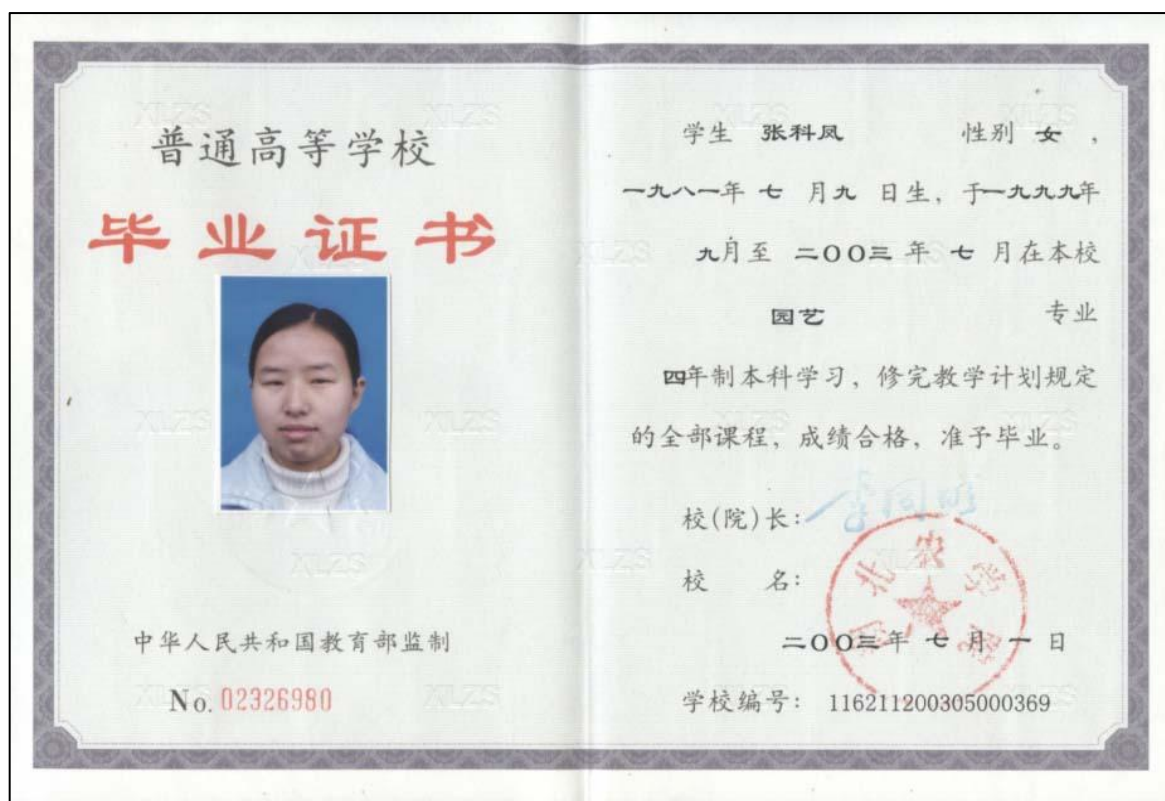 普通高等学校
毕业证书
中华人民共和国教育部监制
No. 02326980
学生 张科凤 性别 女 ，
一九八一年 七 月九 日生，于一九九九年
九月至 二OO三 年 七 月在本校
园艺 专业
四年制本科学习，修完教学计划规定
的全部课程，成绩合格，准予毕业。
校(院)长：
校 名：
北农学院
二OO三年 七 月 一 日
学校编号： 116211200305000369
XLZS